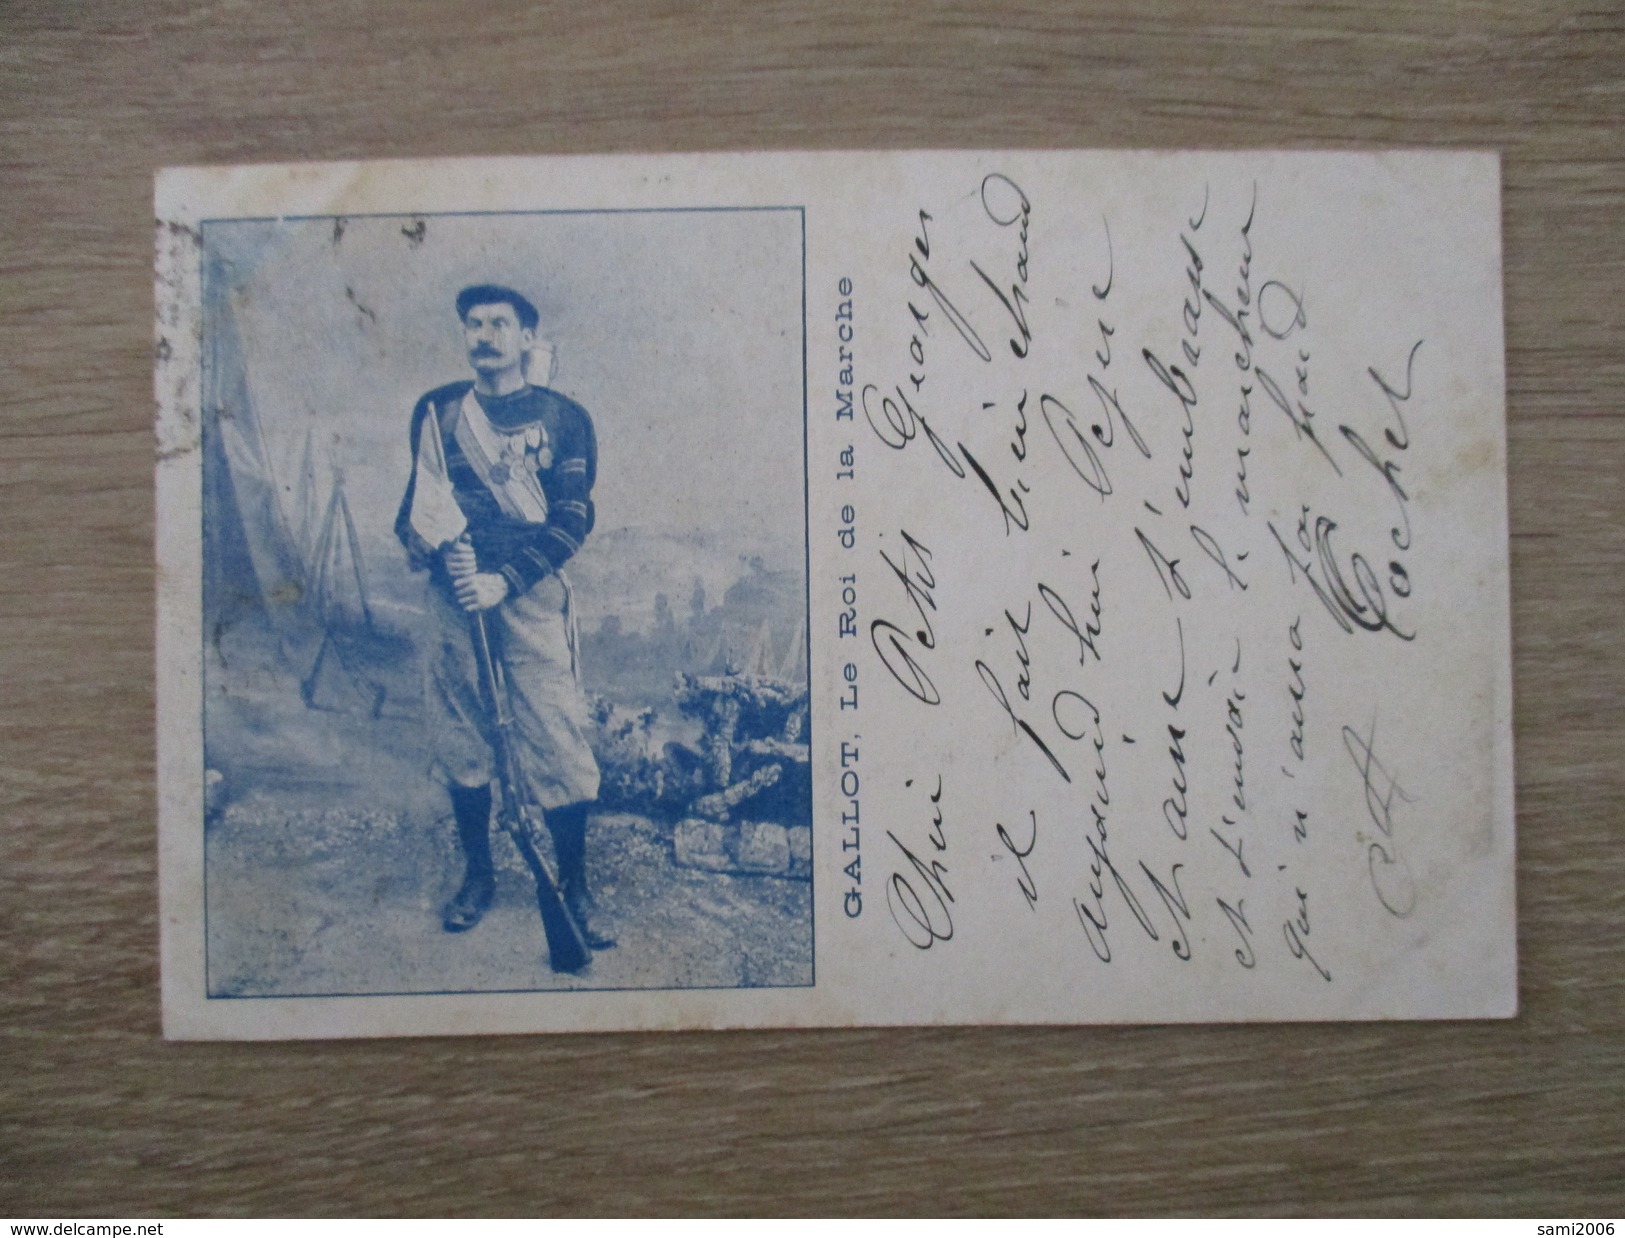 GALLOT, Le Roi de la Marche
Cheri Petit Georges
il fait bien chaud
aujourd'hui Pépère
et aime t'embrasse
et t'envoie le marcheur
qui n'aura pas froid
Cochet
www.delcampe.net
sami2006